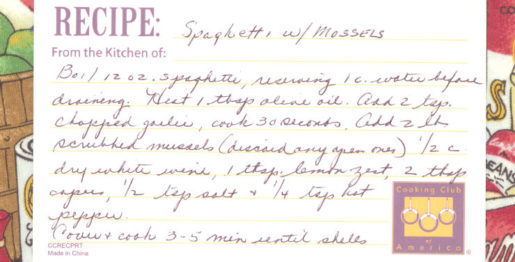 RECIPE: Spaghetti w/ MOSSELS
From the Kitchen of:
Boil 12 oz. spaghetti, reserving 1 c. water before
draining. Heat 1 tbsp olive oil. Add 2 tsp.
chopped garlic, cook 30 seconds. Add 2 lb
scrubbed mussels (discard any open ones) 1/2 c
dry white wine, 1 tbsp. lemon zest, 2 tbsp
capers, 1/2 tsp salt + 1/4 tsp hot
pepper.
Cover & cook 3-5 min until shells
Cooking Club
of
America
CCRECPRT
Made in China